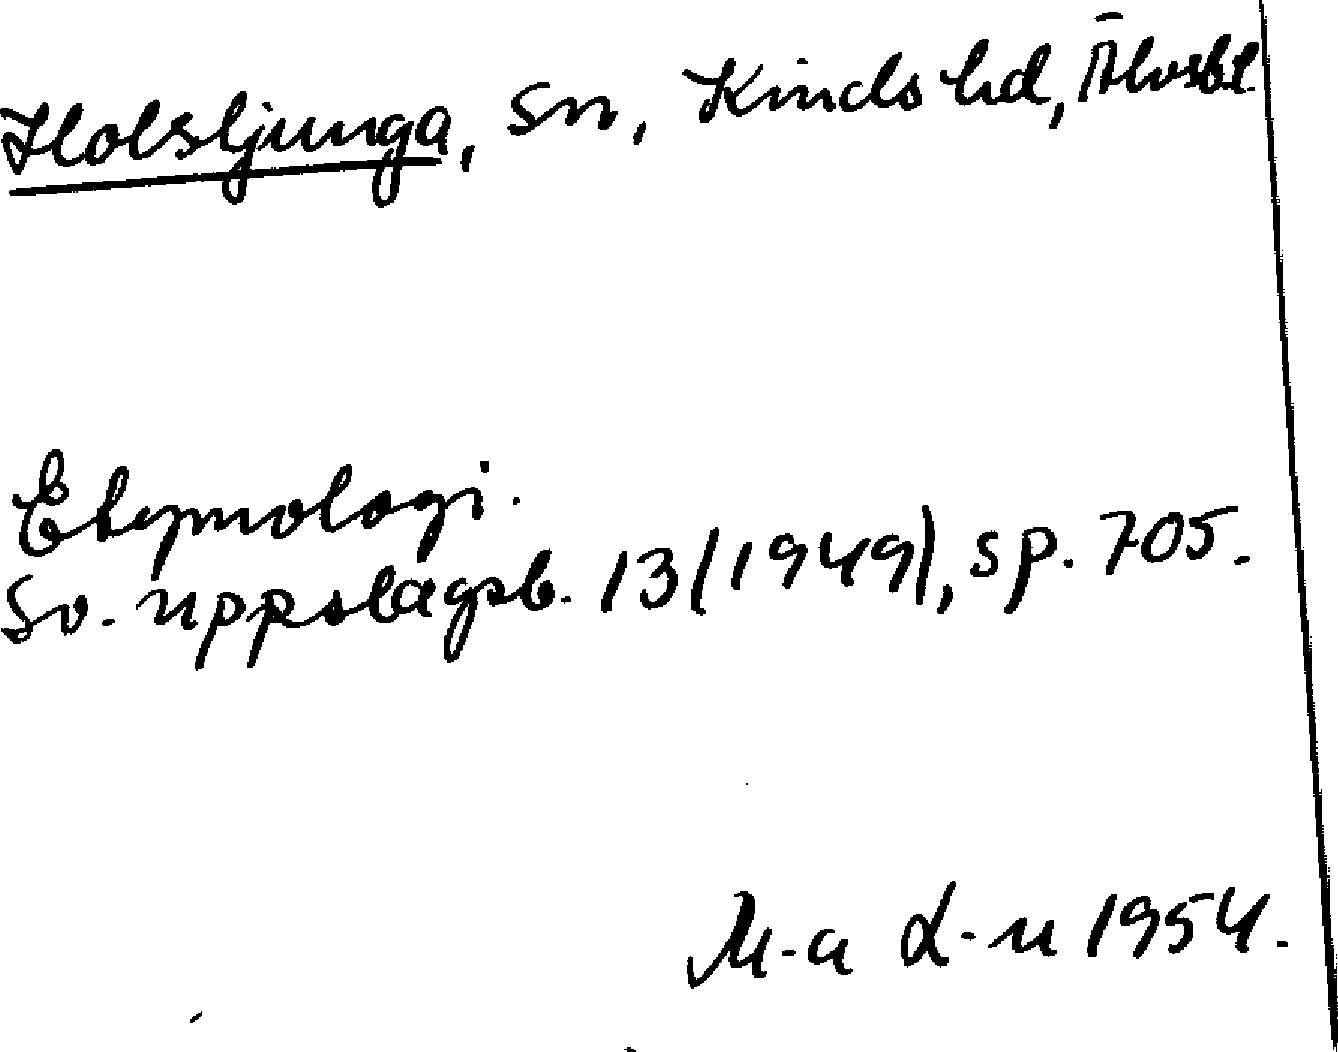 Holsljunga, sn, Kinds hd, Älvsbl.
Etymologi.
Sv. uppslagsb. 13 (1949), sp. 705.
M-a L-n 1954.